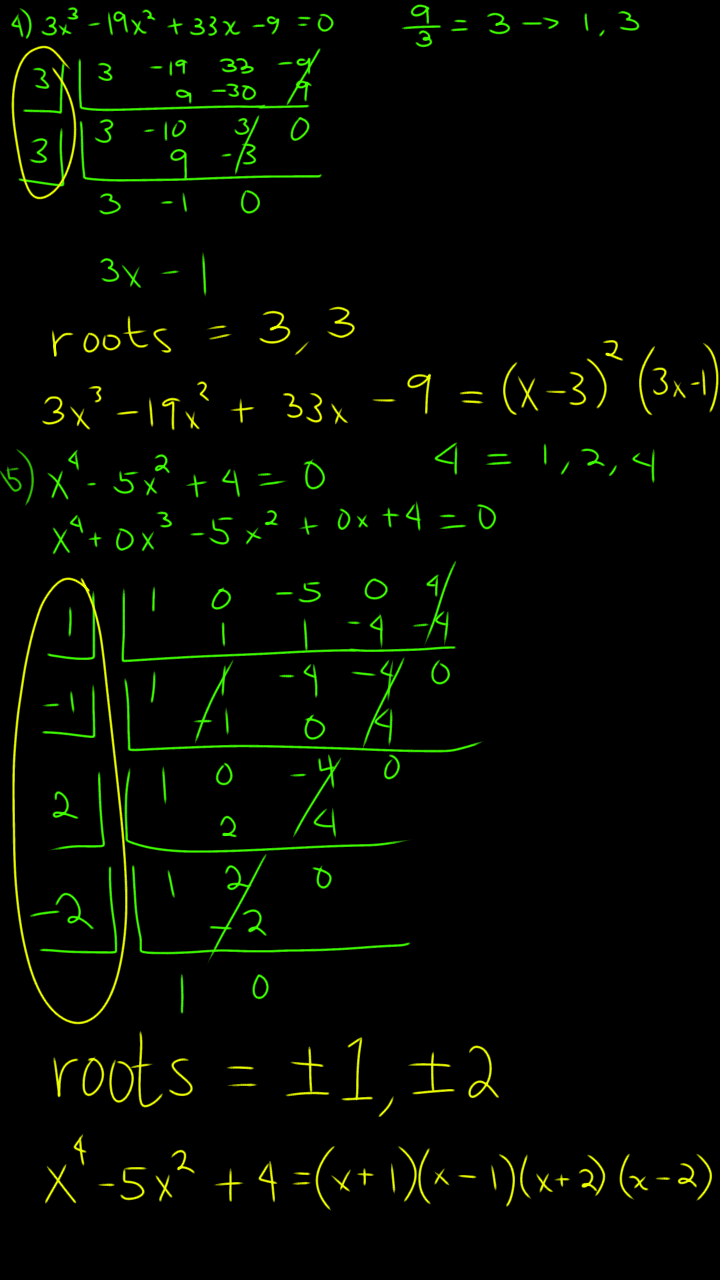 4) 3x³ - 19x² + 33x - 9 = 0
9/3 = 3 -> 1, 3
3 | 3 -19 33 -9
9 -30 9
3 | 3 -10 3 0
9 -3
3 -1 0
3x - 1
roots = 3, 3
3x³ - 19x² + 33x - 9 = (x-3)² (3x-1)
5) x⁴ - 5x² + 4 = 0
4 = 1, 2, 4
x⁴ + 0x³ - 5x² + 0x + 4 = 0
1 | 1 0 -5 0 4
1 1 -4 -4
-1 | 1 1 -4 -4 0
-1 0 4
2 | 1 0 -4 0
2 4
-2 | 1 2 0
-2
1 0
roots = ±1, ±2
x⁴ - 5x² + 4 = (x+1)(x-1)(x+2)(x-2)